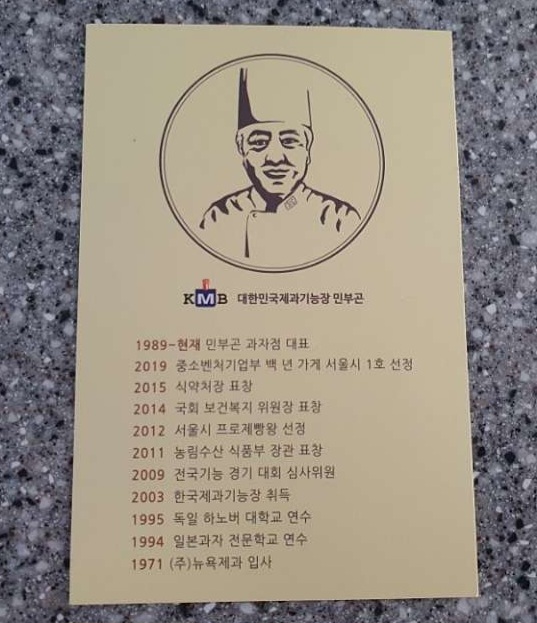 KMB 대한민국제과기능장 민부곤
1989~현재 민부곤 과자점 대표
2019 중소벤처기업부 백 년 가게 서울시 1호 선정
2015 식약처장 표창
2014 국회 보건복지 위원장 표창
2012 서울시 프로제빵왕 선정
2011 농림수산 식품부 장관 표창
2009 전국기능 경기 대회 심사위원
2003 한국제과기능장 취득
1995 독일 하노버 대학교 연수
1994 일본과자 전문학교 연수
1971 (주)뉴욕제과 입사